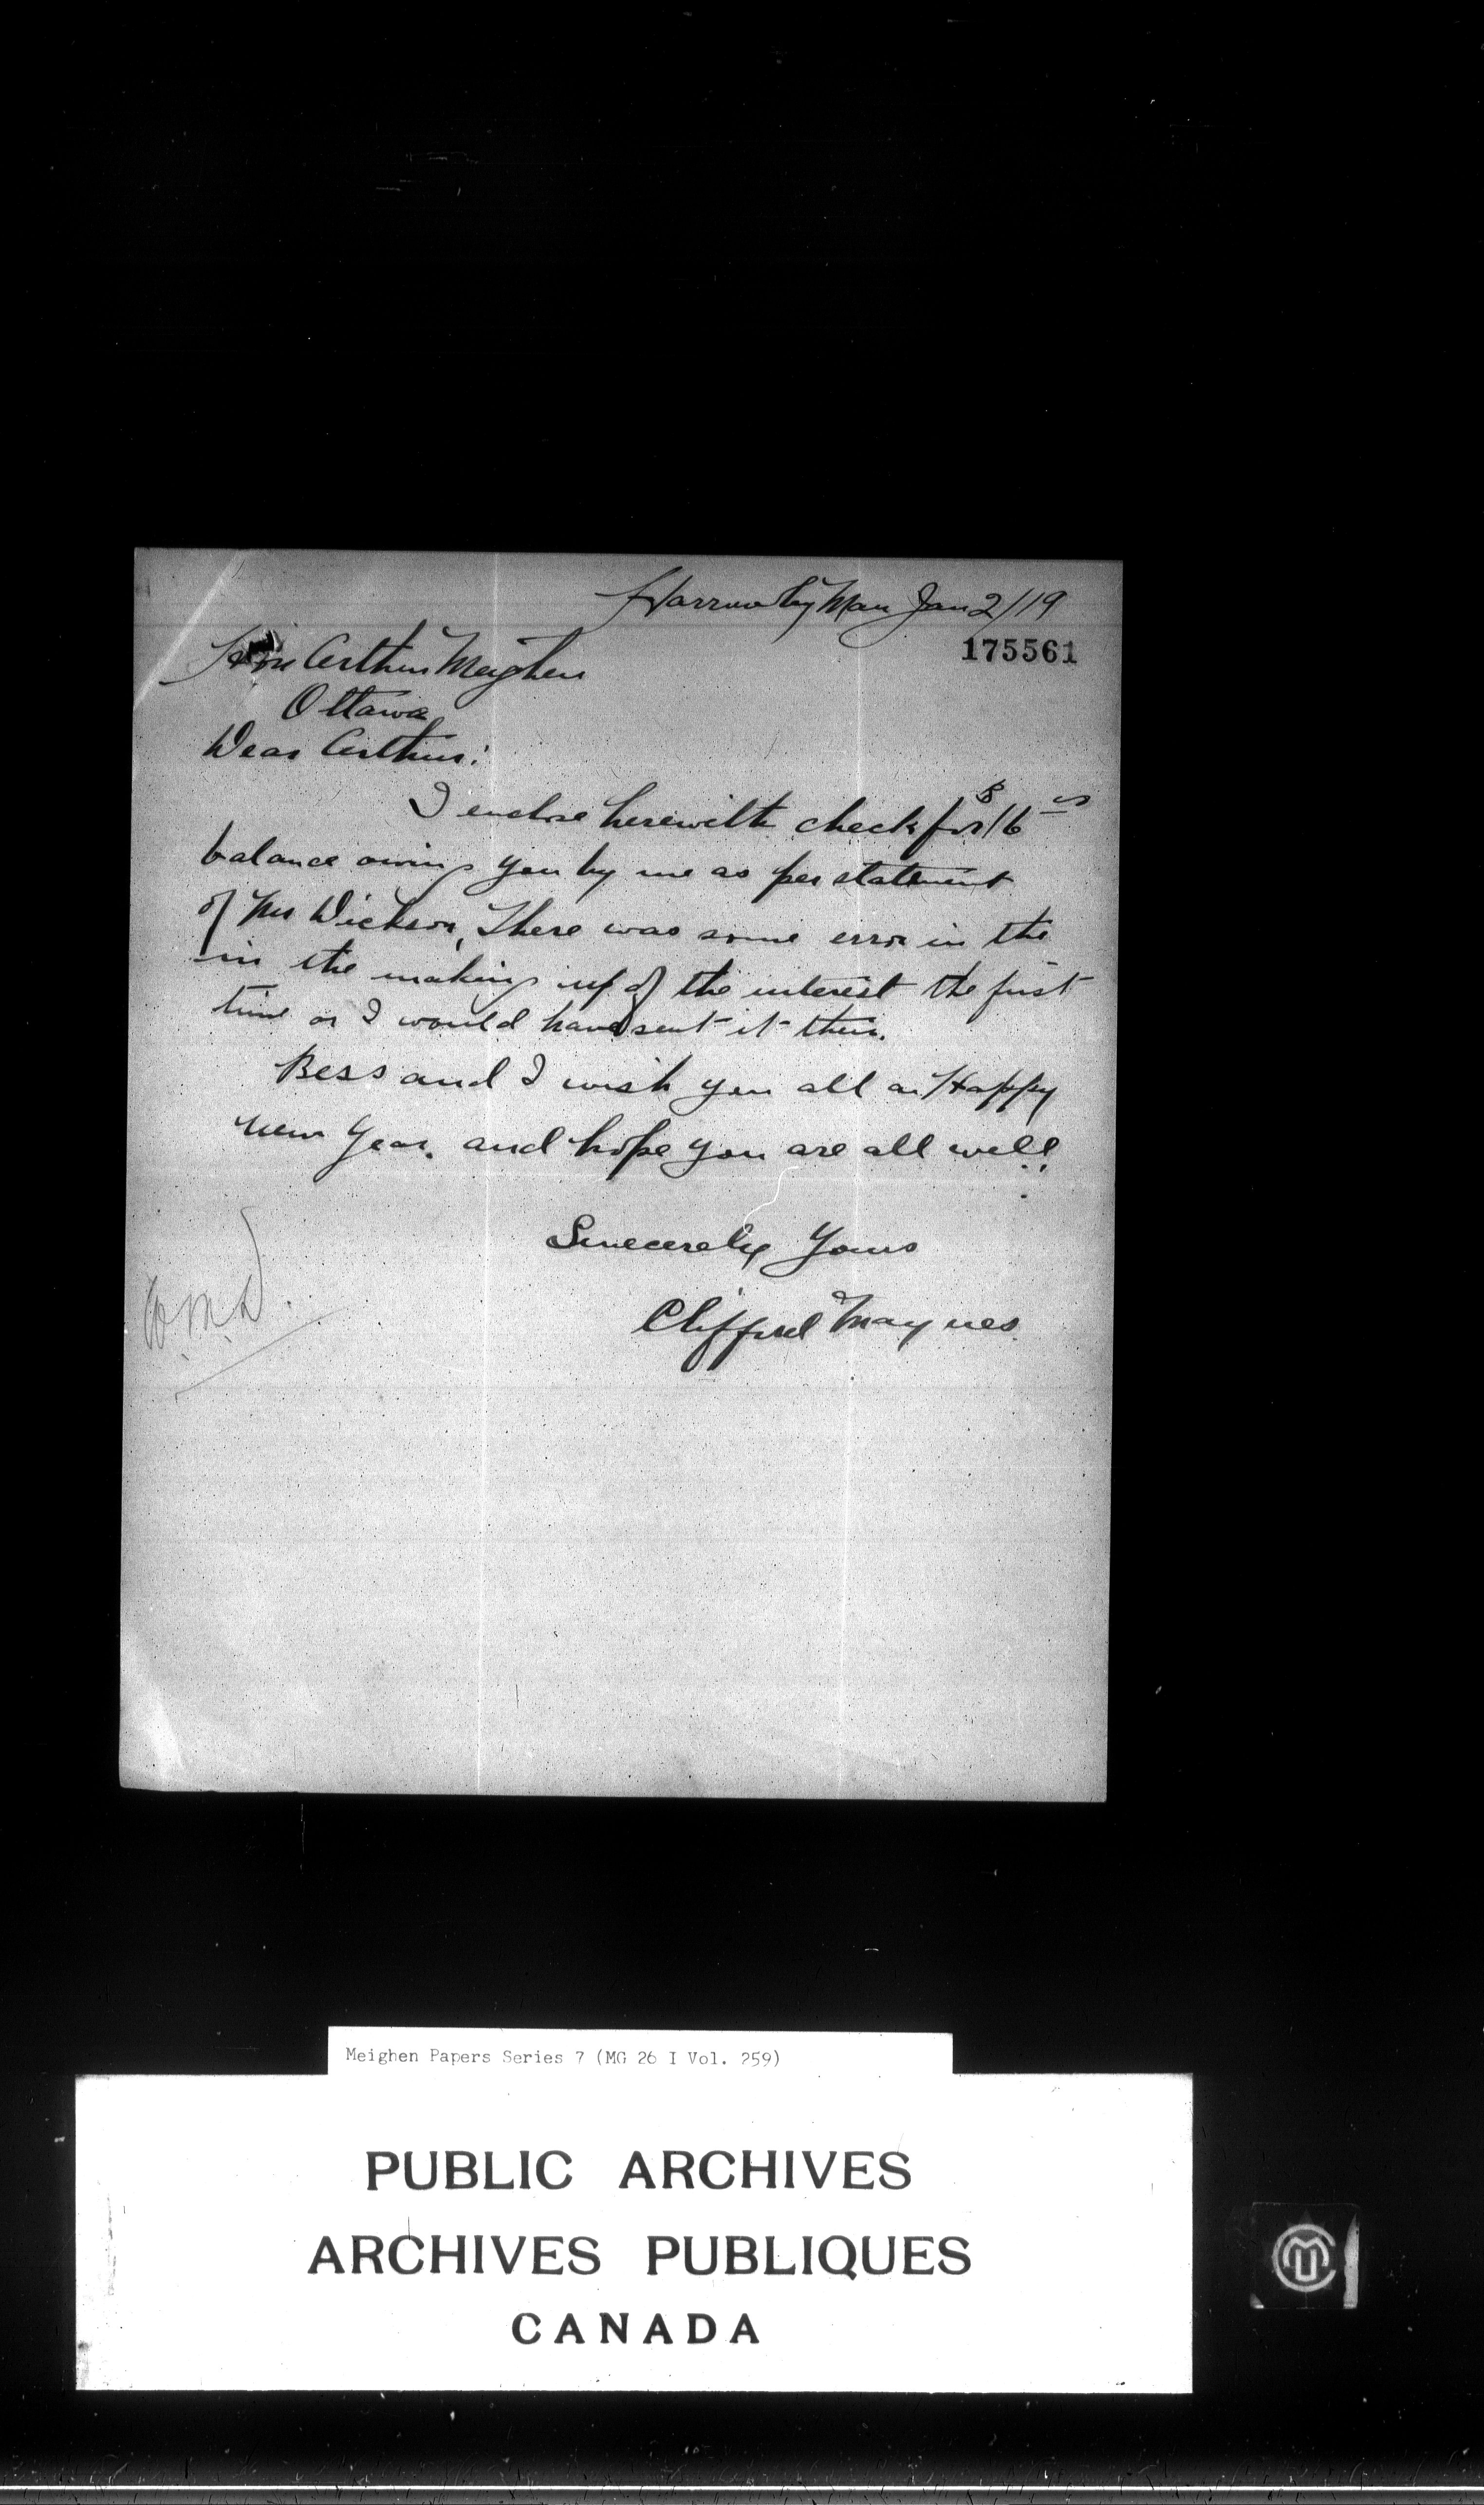 Harrowby Man Jan 2/19
175561
Hon Arthur Meighen
Ottawa
Dear Arthur:
I enclose herewith check for $16
balance owing you by me as per statement
of Mr Dickson, There was some error in the
in the making up of the interest the first
time or I would have sent it then.
Bess and I wish you all a Happy
New Year. and hope you are all well.
Sincerely Yours
Clifford Maynes
Meighen Papers Series 7 (MG 26 I Vol. 259)
PUBLIC ARCHIVES
ARCHIVES PUBLIQUES
CANADA